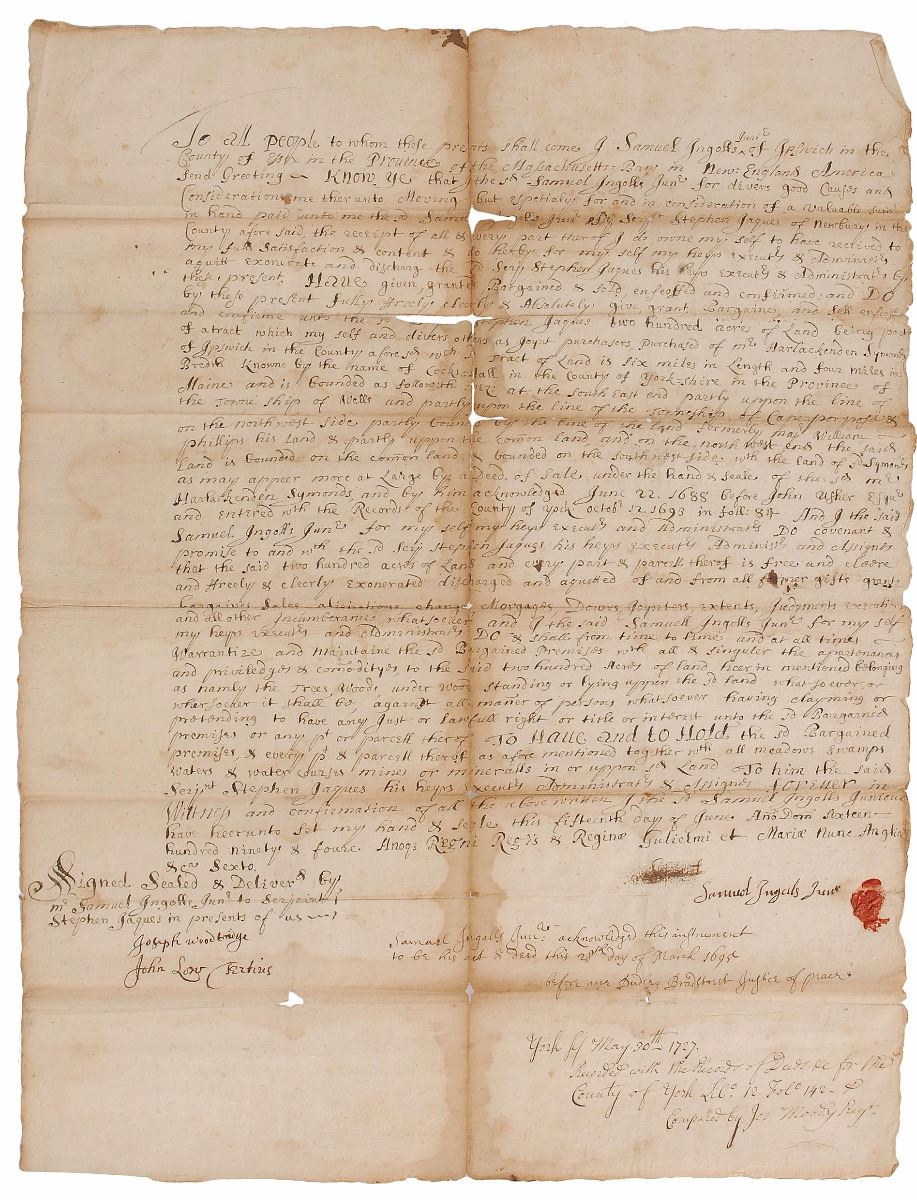 To all People to whom these presents shall come I Samuel Ingolls Junr of Ipswich in the
County of Essix in the Province of the Massachusetts Bay in New-England America
Send Greeting Know Ye that I the sd Samuel Ingolls Junr for divers good Causes and
Considerations me therunto Moving but Espetialy for and in consideration of a valuable sum
in hand paid unto me the sd Samuel Junr By Serjt Stephen Jaques of Newbury in the
County afore said, the receipt of all & every part therof I do owne my self to have received to
my full satisfaction & content & do herby for my self my heyrs executrs & administratrs
aquitt exonerate and discharge the sd Serjt Stephen Jaques his heyrs executrs & administratrs by
these present Have given, granted Bargained & sold, enfeoffed and confirmed: and DO
by these present fully freely cleerly & Absolutely give, grant, Bargaine, and sell enfeoff
and confirme unto the sd Stephen Jaques two hundred acres of Land being part
of a tract which my self and divers others as Joynt purchasers purchased of mr Harlackenden Symonds
of Ipswich in the County afore sd wch sd Tract of Land is six miles in Length and four miles in
Bredth Knowne by the name of Cocks-Hall in the County of York-shire in the Province of
Maine and is bounded as followeth viz at the South East end partly upon the line of
the Towne ship of Wells and partly upon the line of the Township of Cape-porpose &
on the northwest side partly bound by the line of the land formerly majr William
Phillips his Land & partly uppon the Comon land and on the north west end the said
Land is bounded on the comon land & bounded on the southwest side wth the land of sd Symonds
as may apper more at Large by a Deed of Sale under the hand & seale of the sd mr
Harlackenden Symonds and by him acknowledged June 22. 1688 before John Usher Esqr
and entered with the Records of the County of York Octobr 12. 1693 in foll: 84 And I the said
Samuel Ingolls Junr for my self my heyrs Executrs and Administratrs DO covenant &
promise to and wth the sd Serjt Stephen Jaques his heyrs executrs Administrs and Assignes
that the said two hundred acres of Land and every part & parcell therof is free and cleere
and freely & cleerly exonerated discharged and aquitted of and from all former gifts grants
bargaines Sales alienations change Morgages, Dowrs Joynters, extents, Judgments execution
and all other Incumberances whatsoever and I the said Samuell Ingolls Junr for my self
my heyrs executrs and Administratrs DO & shall from time to time and at all times
Warrantize and Maintaine the sd Bargained Premises with all & singuler the apurtenances
and priviledges & comodityes to the said two hundred Acres of land heer in mentioned belonging
as namly the Trees, Wood, under Wood standing or lying uppon the sd land what soever, or
whersoever it shall be, against all maner of persons whatsoever having clayming or
pretending to have any Just or lawfull right or title or interest unto the sd Bargained
premises or any pt or parcell therof To Have and to Hold the sd Bargained
premises, & every pt & parcell therof as afore mentioned together wth all meadows swamps
Waters & water courses mines or mineralls in or uppon sd Land To him the said
Serjnt Stephen Jaques his heyrs executrs Administratrs & Assignes FOREVER in
Wittness and confirmation of all the above written I the sd Samuel Ingolls Juniour
have heerunto set my hand & seale this fifteenth day of June Ano Dom Sixteen
hundred ninety & foure Anoqe Regni Regis & Reginæ Gulielmi et Mariæ nunc Angliæ
&ca Sexto.
Signed Sealed & Deliverd by
mr Samuel Ingolls Junr to Serjeant
Stephen Jaques in presents of us
Samuel Ingals Junr
Joseph woodbridge
John Low Tertius
Samuel Ingalls Junr: acknowledged this instrument
to be his act & deed this day of March 1695
before me Dudley Bradstreet Justice of peace
York ss May 20th 1727.
Recorded with the Records of Deeds &c for the
County of York Libo. 12 Folo 142
Compared by Jos Moody Regr